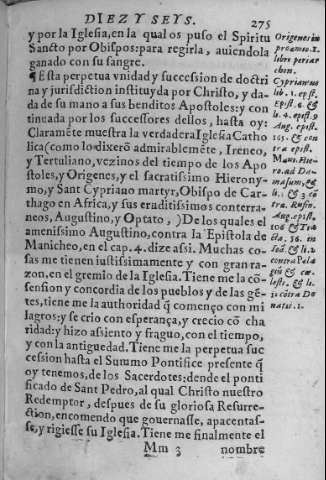 DIEZ Y SEYS.
275
y por la Iglesia, en la qual os puso el Spiritu
Sancto por Obispos: para regirla, auiendola
ganado con su sangre.
¶ Esta perpetua vnidad y succession de doctri
na y jurisdiction instituyda por Christo, y da-
da de su mano a sus benditos Apostoles: y con
tinuada por los successores dellos, hasta oy:
Claramẽte muestra la verdadera Iglesia Catho
lica (como lo dixerõ admirablemẽte, Ireneo,
y Tertuliano, vezinos del tiempo de los Apo
stoles, y Origenes, y el sacratissimo Hierony-
mo, y Sant Cypriano martyr, Obispo de Car-
thago en Africa, y sus eruditissimos conterra-
neos, Augustino, y Optato, ) De los quales el
amenissimo Augustino, contra la Epistola de
Manicheo, en el cap. 4. dize assi. Muchas co-
sas me tienen iustissimamente y con gran ra-
zon, en el gremio de la Iglesia. Tiene me la cõ-
sension y concordia de los pueblos y de las gẽ-
tes, tiene me la authoridad q̃ començo con mi
lagros: y se crio con esperança, y crecio cõ cha
ridad: y hizo assiento y fraguo, con el tiempo,
y con la antiguedad. Tiene me la perpetua suc
cession hasta el Summo Pontifice presente q̃
oy tenemos, de los Sacerdotes: dende el ponti
ficado de Sant Pedro, al qual Christo nuestro
Redemptor, despues de su gloriosa Resurre-
ction, encomendo que gouernasse, apacentas-
se, y rigiesse su Iglesia. Tiene me finalmente el
Mm 3 nombre
Origenes in
proœmio. I.
libr. periar
chon.
Cyprianus
lib. 1. epist.
Epist. 6. &
li. 4. epist. 9
Aug. epist.
165. & con
tra epist.
Mani. Hie-
ro. ad Da-
masum, &
li. 3 cõ
tra. Ruffin.
Aug. epist.
106 & Tra
cta. 36. in
Ioã. & li. 2
contra Pela
giũ & cœ-
lestē. & li.
cõtra Do
natis. 1.